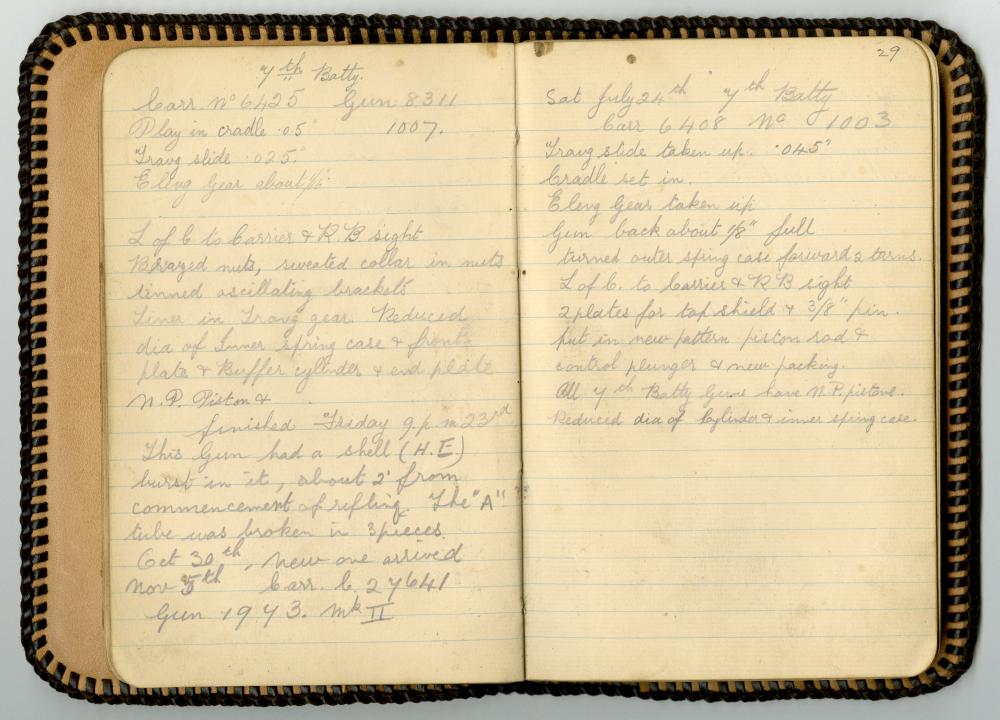 7th Batty.
Carr. No 6425 Gun 8311
Play in cradle .05 1007.
Travg slide .025"
Elevg Gear about 1/16
L of C to Carrier & R B sight
Brazed nuts, sweated collar in nuts
tinned oscillating brackets
Liner in Travg gear. Reduced
dia of Inner spring case & front
plate & Buffer cylinder & end plate
N.P. Piston &
finished Friday 9 p.m 23rd
This Gun had a shell (H.E.)
burst in it, about 2' from
commencement of rifling. The "A"
tube was broken in 3 pieces.
Oct 30th, new one arrived
Nov 5th Carr. C. 27641
Gun 1973. Mk II
29
Sat July 24th 7th Batty
Carr 6408 No 1003
Travg slide taken up. .045"
Cradle set in.
Elevg Gear taken up
Gun back about 1/8" full
turned outer spring case forward 2 turns.
L of C. to Carrier & R B sight
2 plates for top shield & 3/8" pin.
put in new pattern piston rod &
control plunger & new packing.
All 7th Batty Guns have N.P. pistons.
Reduced dia of Cylinder & inner spring case.